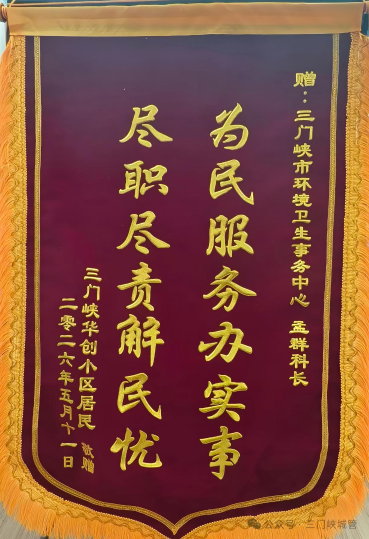 赠：三门峡市环境卫生事务中心 孟群科长
为民服务办实事
尽职尽责解民忧
三门峡华创小区居民 敬赠
二零二六年五月十一日
公众号·三门峡城管